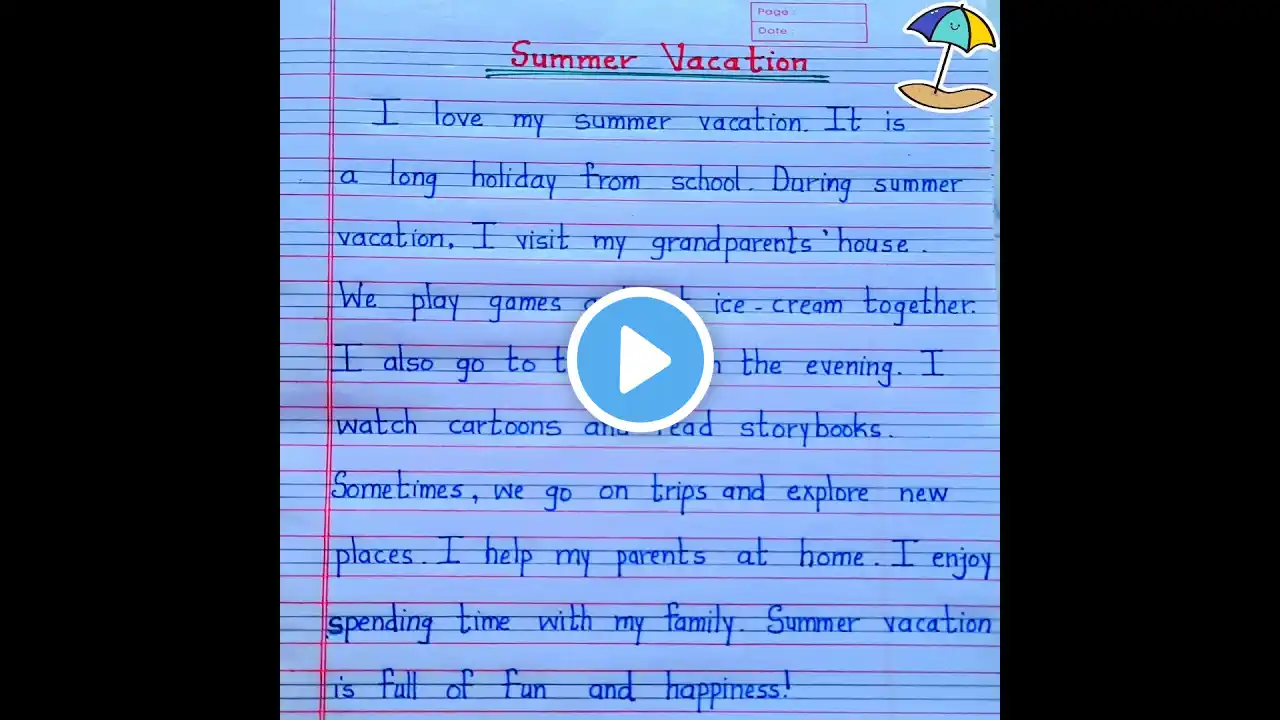 Page :
Date :
Summer Vacation
I love my summer vacation. It is
a long holiday from school. During summer
vacation, I visit my grandparents' house.
We play games ice-cream together.
I also go to the evening. I
watch cartoons and read storybooks.
Sometimes, we go on trips and explore new
places. I help my parents at home. I enjoy
spending time with my family. Summer vacation
is full of fun and happiness!